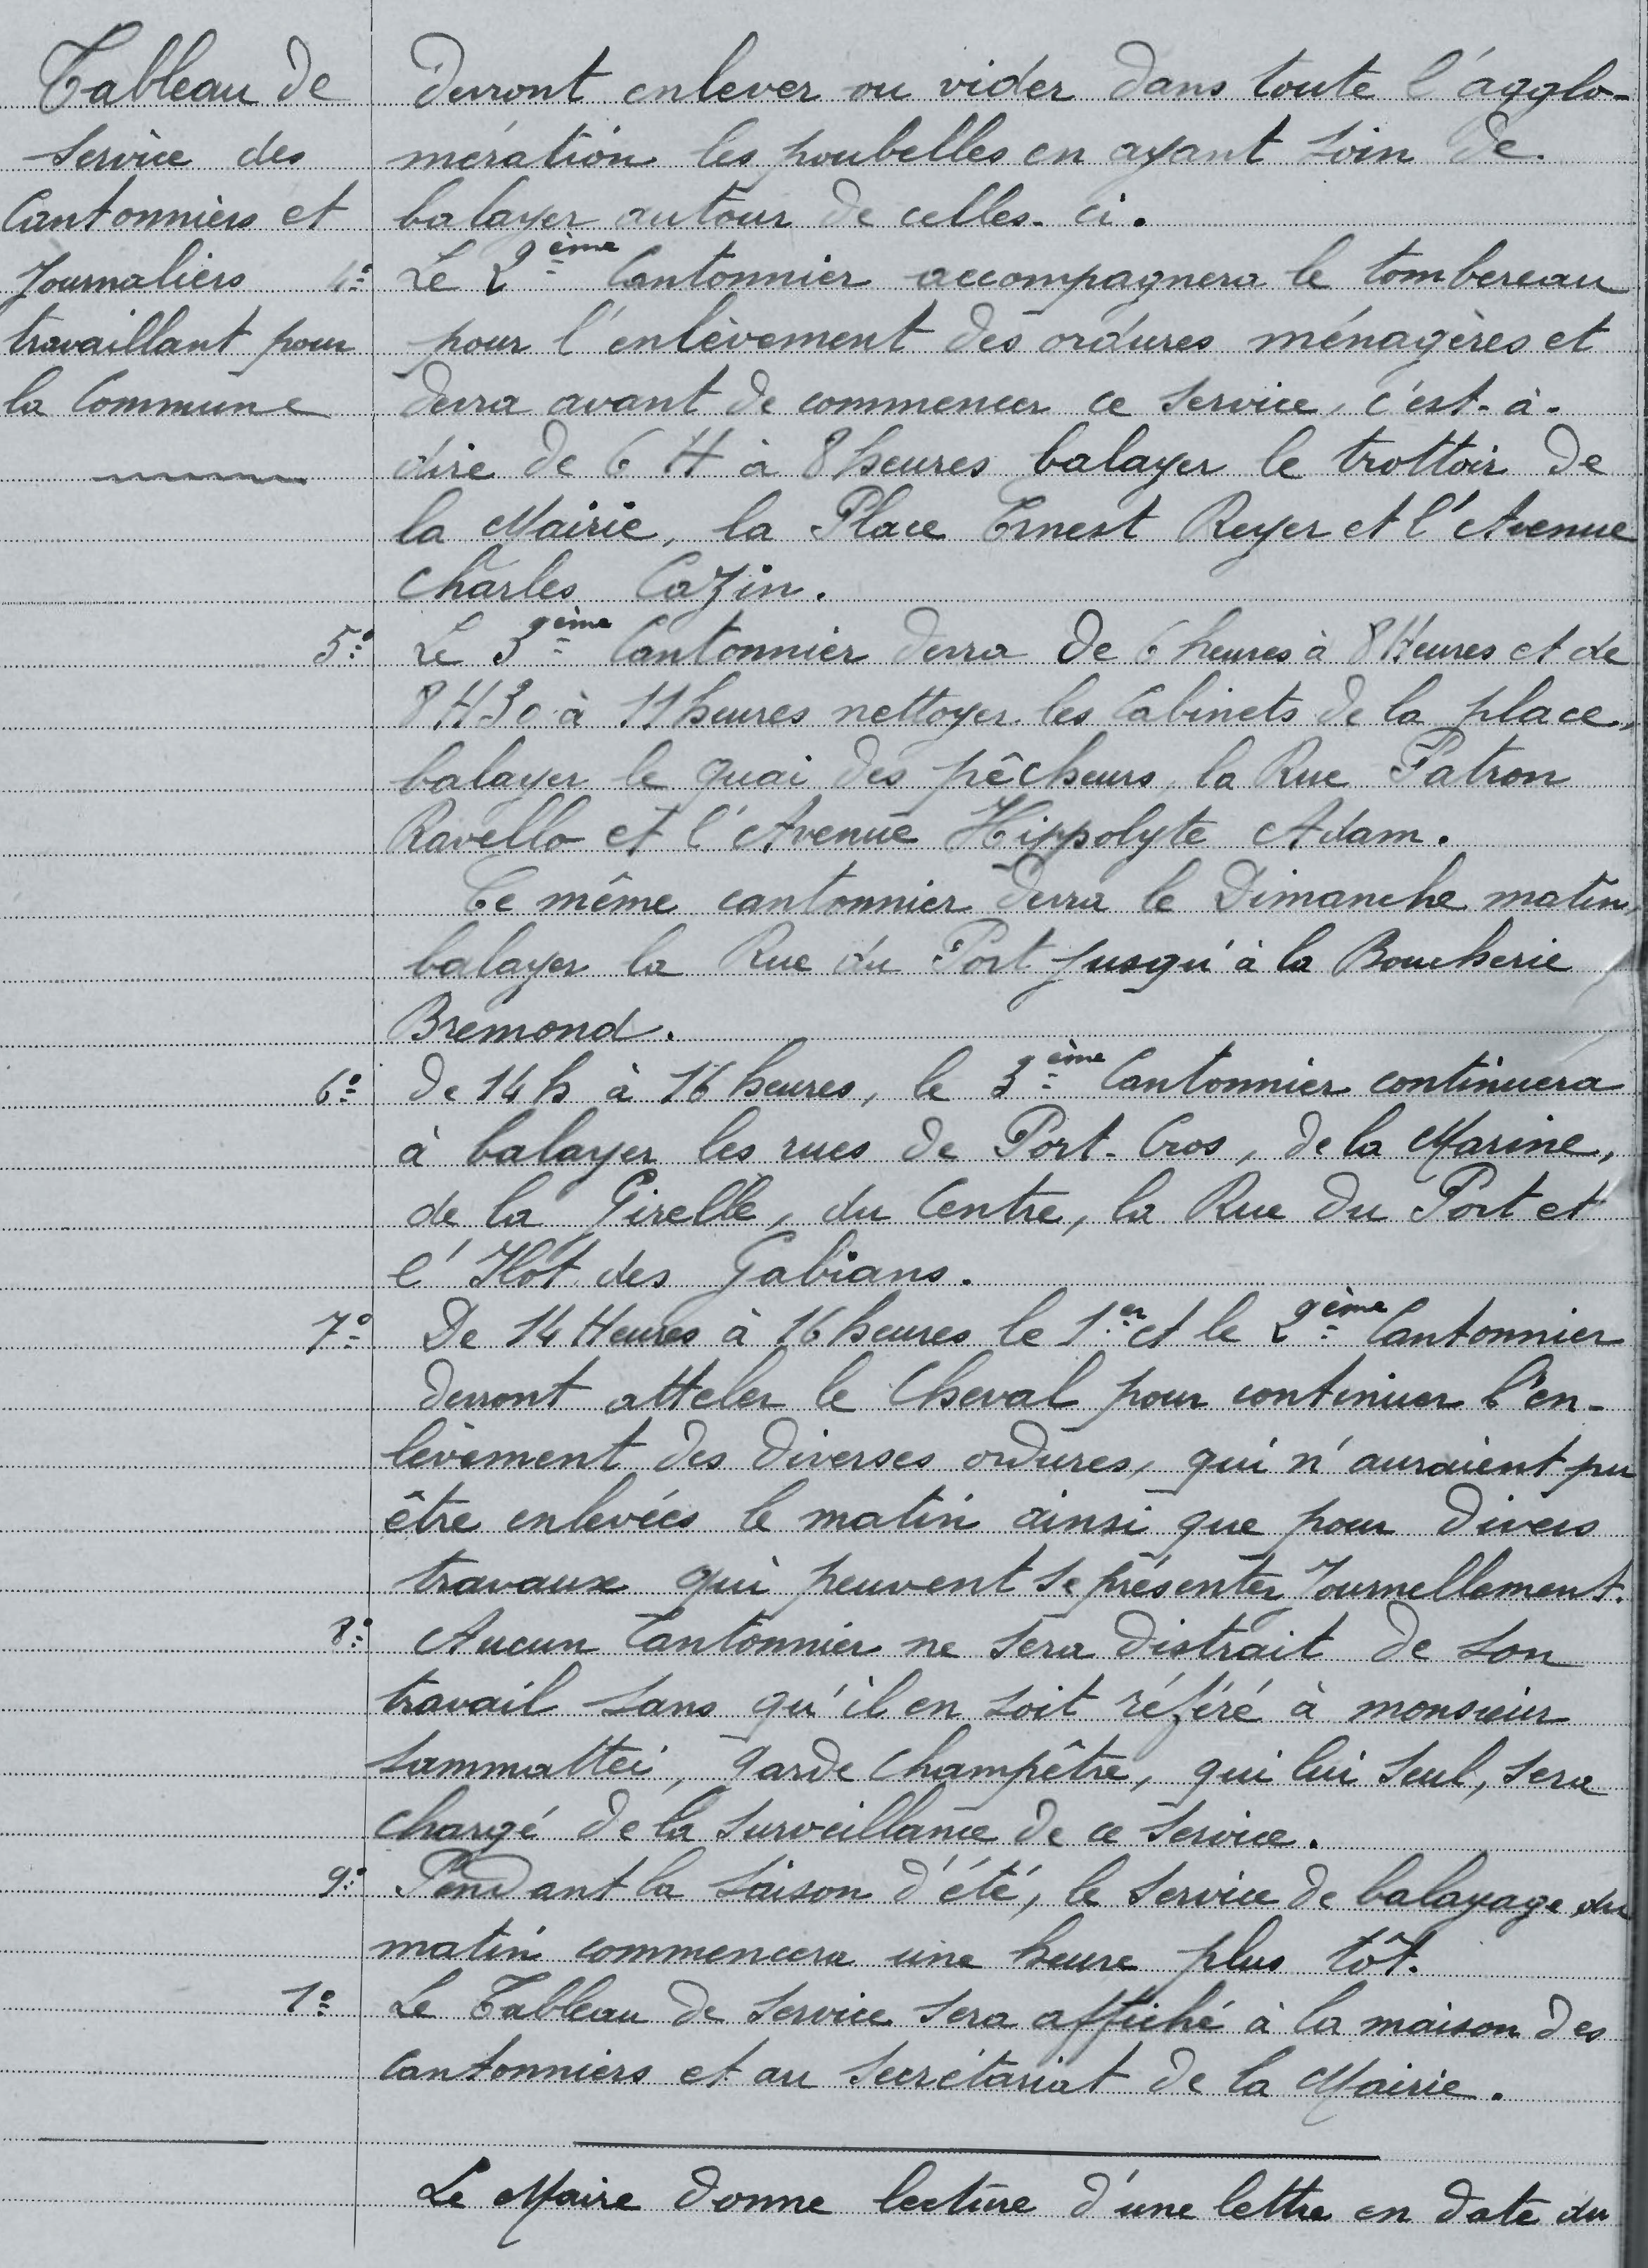 Tableau de
Service des
Cantonniers et
Journaliers
travaillant pour
la Commune
devront enlever ou vider dans toute l'agglo-
mération les poubelles en ayant soin de
balayer autour de celles-ci.
4° Le 2ème Cantonnier accompagnera le tombereau
pour l'enlèvement des ordures ménagères et
devra avant de commencer ce service, c'est-à-
dire de 6 H à 8 heures balayer le trottoir de
la Mairie, la Place Ernest Reyer et l'Avenue
Charles Cazin.
5° Le 3ème Cantonnier devra de 6 heures à 8 Heures et de
8 H 30 à 11 heures nettoyer les Cabinets de la place,
balayer le quai des pêcheurs, la Rue Patron
Ravello et l'Avenue Hippolyte Adam.
Ce même cantonnier devra le Dimanche matin,
balayer la Rue du Port jusqu'à la Boucherie
Bremond.
6° De 14 h à 16 heures, le 3ème Cantonnier continuera
à balayer les rues de Port-Cros, de la Marine,
de la Girelle, du Centre, la Rue du Port et
l'Ilôt des Gabians.
7° De 14 Heures à 16 heures le 1er et le 2ème Cantonnier
devront atteler le Cheval pour continuer l'en-
lèvement des diverses ordures, qui n'auraient pu
être enlevées le matin ainsi que pour divers
travaux qui peuvent se présenter Journellement.
8° Aucun Cantonnier ne sera distrait de son
travail sans qu'il en soit référé à monsieur
Sammattei, Garde Champêtre, qui lui seul, sera
chargé de la surveillance de ce service.
9° Pendant la saison d'été, le service de balayage du
matin commencera une heure plus tôt.
1° Le Tableau de service sera affiché à la maison des
Cantonniers et au Secrétariat de la Mairie.
Le Maire donne lecture d'une lettre en date du